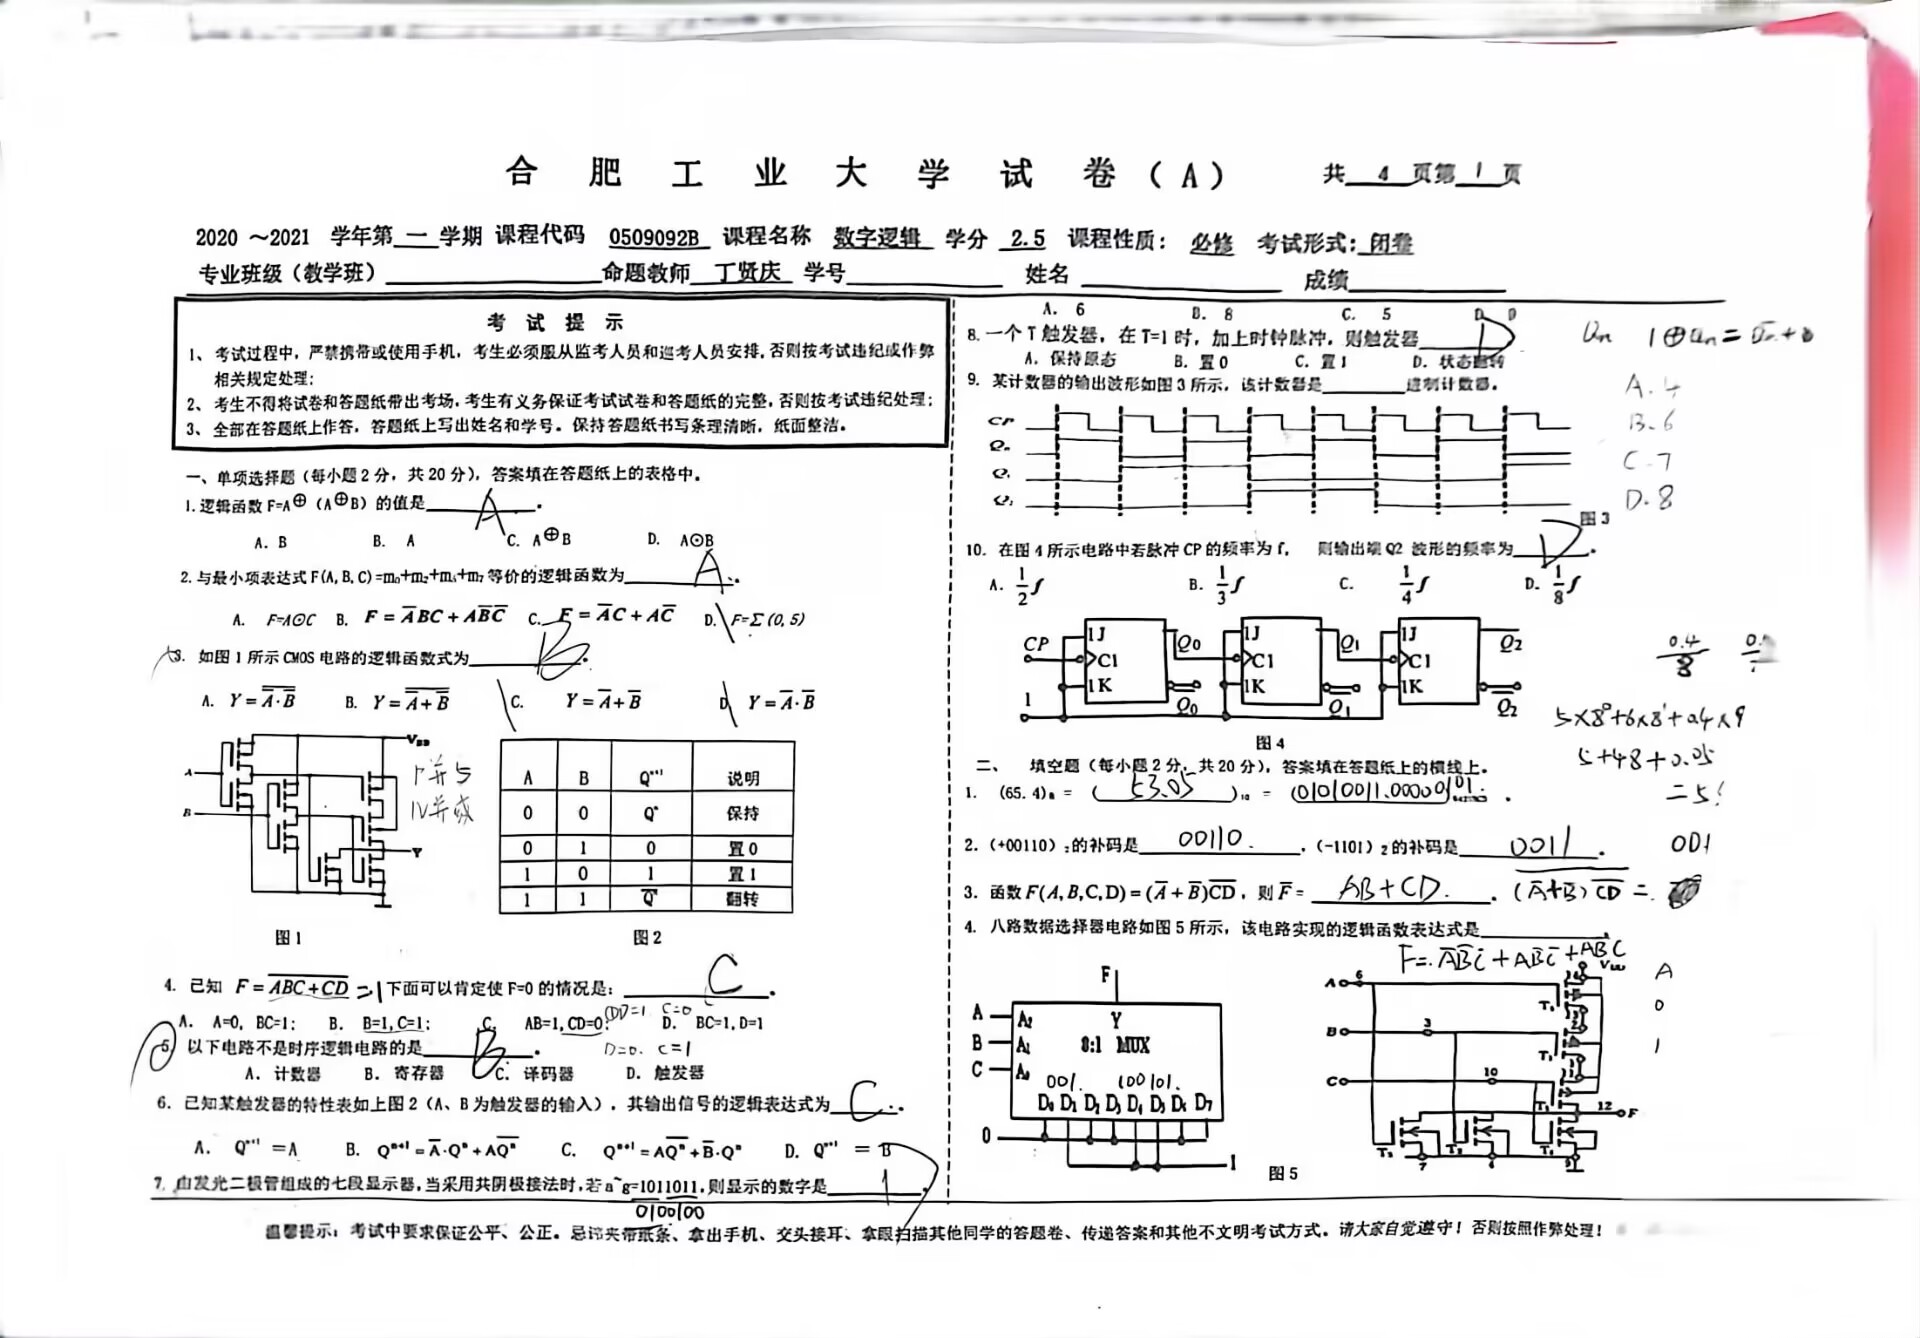 合肥工业大学试卷（A） 共 4 页第 1 页
2020 ～2021 学年第 一 学期 课程代码 0509092B 课程名称 数字逻辑 学分 2.5 课程性质：必修 考试形式：闭卷
专业班级（教学班） 命题教师 丁贤庆 学号 姓名 成绩
考 试 提 示
1、考试过程中，严禁携带或使用手机，考生必须服从监考人员和巡考人员安排，否则按考试违纪或作弊
相关规定处理；
2、考生不得将试卷和答题纸带出考场，考生有义务保证考试试卷和答题纸的完整，否则按考试违纪处理；
3、全部在答题纸上作答，答题纸上写出姓名和学号。保持答题纸书写条理清晰，纸面整洁。
一、单项选择题（每小题2分，共20分），答案填在答题纸上的表格中。
1.逻辑函数 F=A⊕（A⊕B）的值是 A 。
A. B B. A C. A⊕B D. A⊙B
2.与最小项表达式 F(A,B,C)=m₀+m₂+m₅+m₇ 等价的逻辑函数为 A 。
A. F=A⊙C B. F = A̅BC + AB̅C̅ C. F = A̅C + AC̅ D. F=Σ(0,5)
3. 如图1所示CMOS电路的逻辑函数式为 B 。
A. Y = \overline{A̅·B̅} B. Y = \overline{A̅+B̅} C. Y = A̅+B̅ D. Y = A̅·B̅
A
B
V_DD
Y
P并与
A B Qⁿ⁺¹ 说明
0 0 Qⁿ 保持
0 1 0 置0
1 0 1 置1
1 1 Q̅ⁿ 翻转
图1
图2
4. 已知 F = \overline{ABC+CD} =1 下面可以肯定使F=0的情况是： C 。
A. A=0, BC=1; B. B=1,C=1; C. AB=1,CD=0; D. BC=1,D=1
C=0
D=0. C=1
5 以下电路不是时序逻辑电路的是 B 。
A. 计数器 B. 寄存器 C. 译码器 D. 触发器
6. 已知某触发器的特性表如上图2（A、B为触发器的输入），其输出信号的逻辑表达式为 C 。
A. Qⁿ⁺¹ =A B. Qⁿ⁺¹=A̅·Qⁿ+AQ̅ⁿ C. Qⁿ⁺¹=AQ̅ⁿ+B̅·Qⁿ D. Qⁿ⁺¹ = B
7. 由发光二极管组成的七段显示器，当采用共阴极接法时，若a~g=1011011，则显示的数字是 1 。
0100100
A. 6 B. 8 C. 5 D. 9
8. 一个T触发器，在T=1时，加上时钟脉冲，则触发器 D
A. 保持原态 B. 置0 C. 置1 D. 状态翻转
9. 某计数器的输出波形如图3所示，该计数器是 进制计数器。
A. 4
B. 6
C. 7
D. 8
CP
Q₀
Q₁
Q₂
图3
10. 在图4所示电路中若脉冲CP的频率为f， 则输出端Q2 波形的频率为 D 。
A. 1/2 f B. 1/3 f C. 1/4 f D. 1/8 f
CP 1J C1 1K Q0 Q̅0 1J C1 1K Q1 Q̅1 1J C1 1K Q2 Q̅2
1
图4
0.4/8
5+48+0.05
二、 填空题（每小题2分，共20分），答案填在答题纸上的横线上。
1. (65.4)₈ = ( 53.05 )₁₀ = (01010011.00000101) 。
2. (+00110)₂的补码是 00110. ，(-1101)₂的补码是 0011 。
001
3. 函数F(A,B,C,D)=(A̅+B̅)\overline{CD}，则F̅= AB+CD. 。 \overline{(A̅+B̅)\overline{CD}} =
4. 八路数据选择器电路如图5所示，该电路实现的逻辑函数表达式是
F A B C A₂ A₁ A₀ Y
8:1 MUX
001. 100101.
D₀ D₁ D₂ D₃ D₄ D₅ D₆ D₇
0
1
图5
A 6
B 3
C 10
12 F
7 4
A
0
1
温馨提示：考试中要求保证公平、公正。忌讳夹带纸条、拿出手机、交头接耳、拿眼扫描其他同学的答题卷、传递答案和其他不文明考试方式。请大家自觉遵守！否则按照作弊处理！